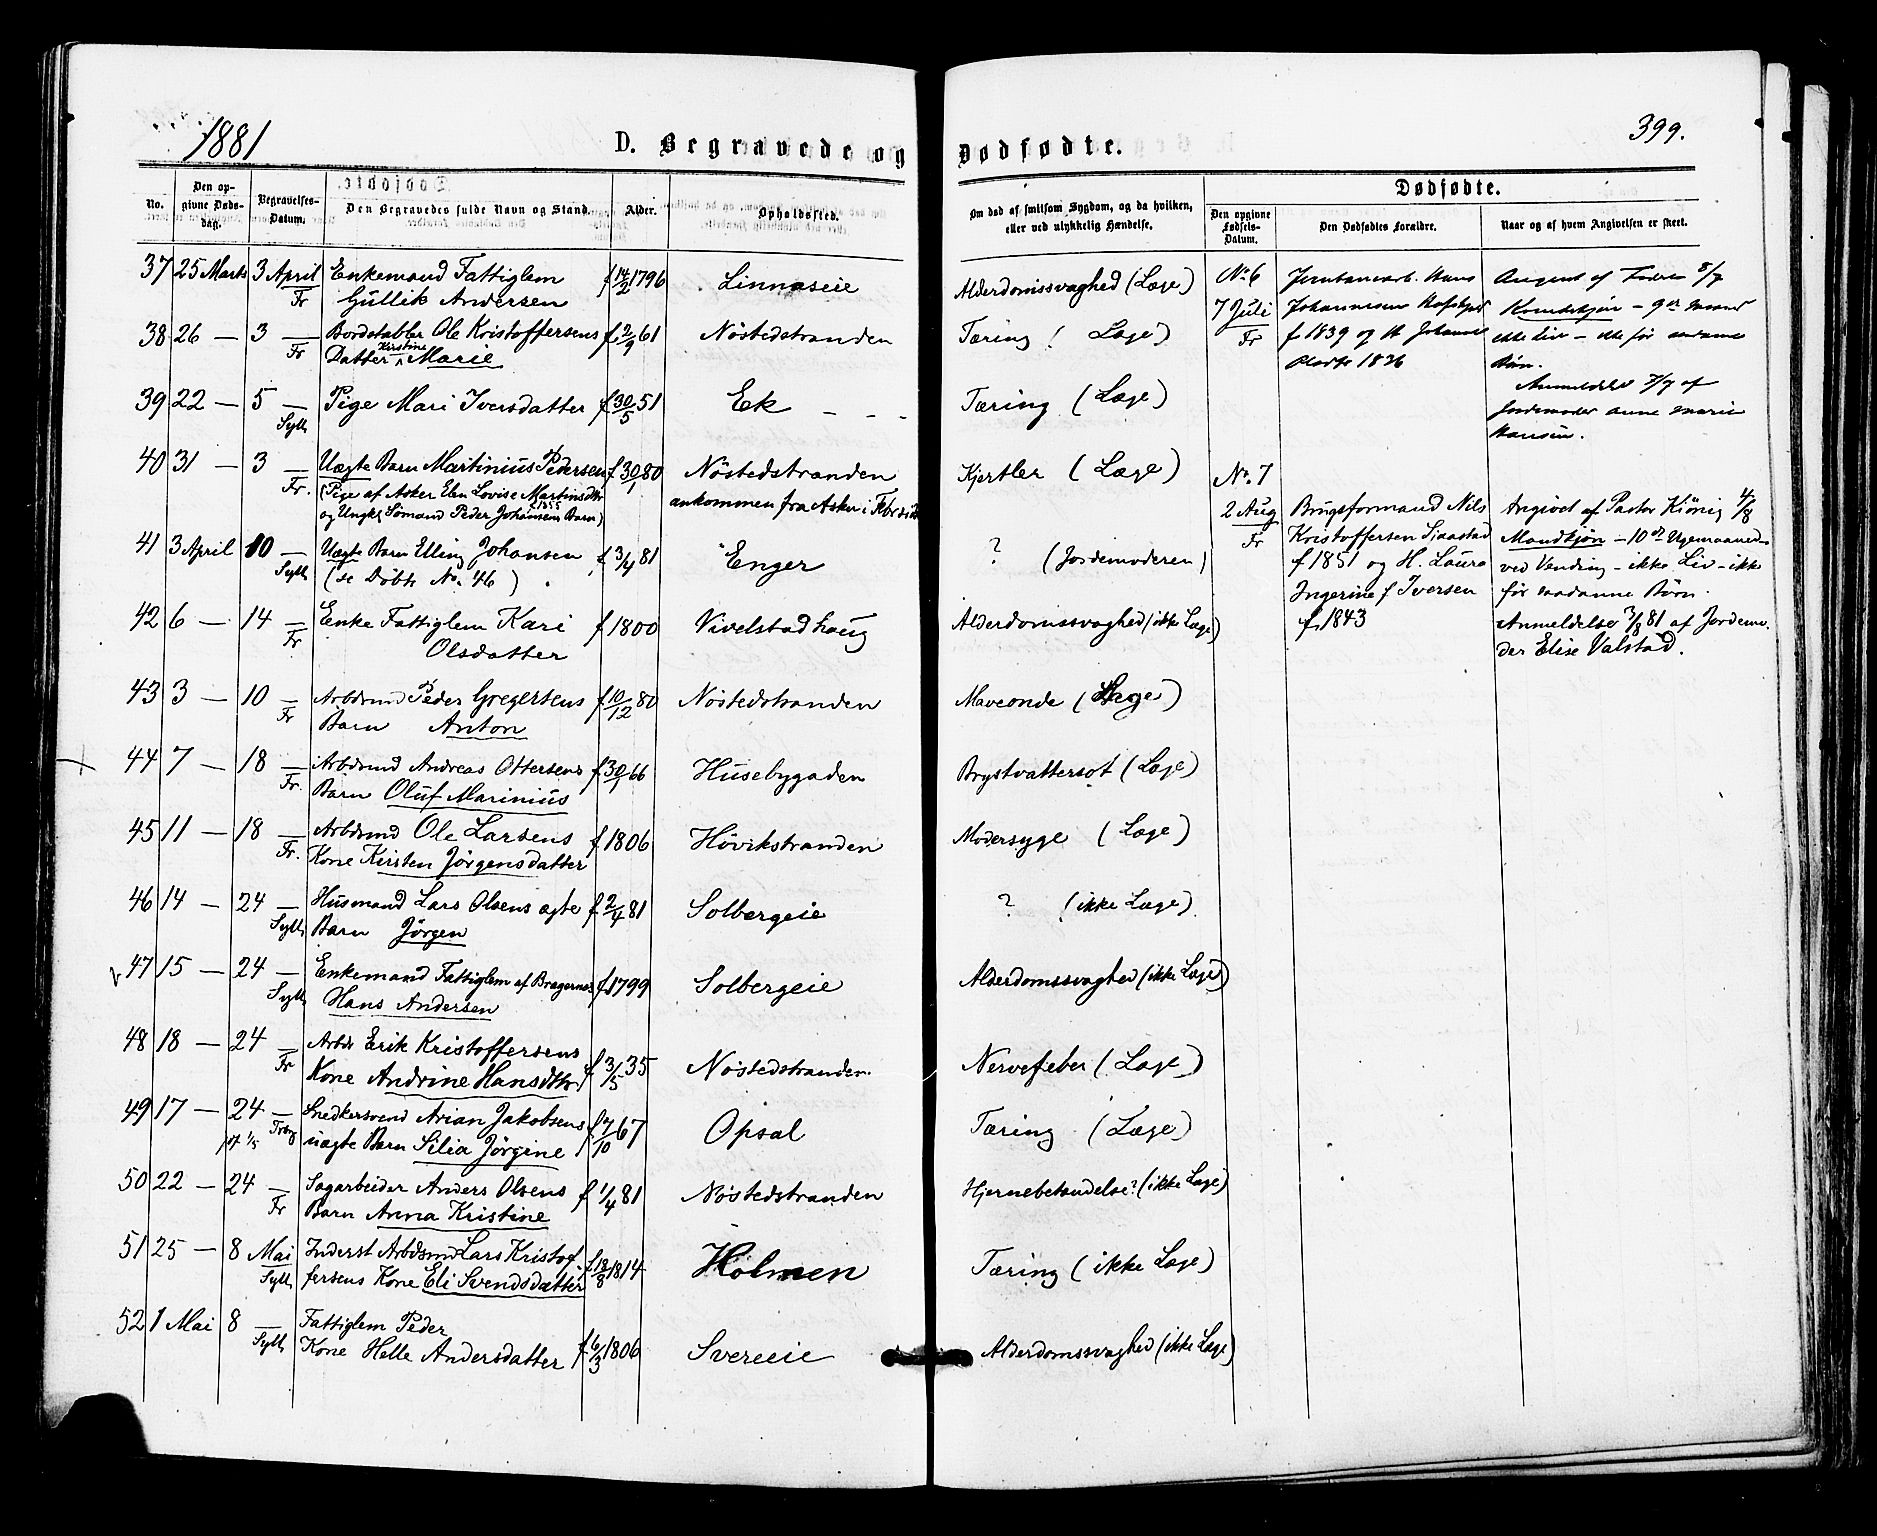 1881
D. Begravede og Dødfødte.
399.
No.
Den opgivne Dødsdag.
Begravelses-Datum.
Den Begravedes fulde Navn og Stand.
Alder.
Opholdssted.
Om død af smitsom Sygdom, og da hvilken, eller ved ulykkelig Hændelse.
Dødfødte.
Den opgivne Fødsels-Datum.
Den Dødfødtes Forældre.
Naar og af hvem Angivelsen er skeet.
37 25 Marts 3 April Enkemand Fattiglem f 14/2 1796 Linnaseie Alderdomssvaghed (Læge)
Fr Gullik Andersen
38 26 — 3 — Bordstabler Ole Kristoffersens f 2/9 61 Nöstedstranden Tæring ( Læge)
Fr Datter Kirstine Marie
39 22 — 5 — Pige Mari Iversdatter f 30/5 51 Ek — — — Tæring (Læge)
Syll
40 31 — 3 — Uægte Barn Martinius Pedersen f 30/1 80 Nöstedstranden Kjertler (Læge)
Fr. (Pige af Asker Elen Lovise Martinsdtr ankommen fra Asker i Febr
og Ungk Sömand Peder Johansens Barn)
41 3 April 10 — Uægte Barn Elling Johansen f 3/4 81 Enger ? (Jordemoderen)
Syll (se Döbte No. 46)
42 6 — 14 — Enke Fattiglem Kari f 1800 Vivelstadhaug Alderdomssvaghed (ikke Læge)
Fr Olsdatter
43 3 — 10 — Arbdsmd Peder Gregersens f 10/12 80 Nöstedstranden Maveonde (Læge)
Fr Barn Anton
44 7 — 18 — Arbdsmd Andreas Ottersens f 30/1 66 Husebygaden Brystvattersot (Læge)
Fr. Barn Oluf Marinius
45 11 — 18 — Arbdsmd Ole Larsens f 1806 Hövikstranden Modersyge (Læge)
Fr. Kone Kirsten Jörgensdatter
46 14 — 24 — Husmand Lars Olsens ægte f 2/4 81 Solbergeie ? (ikke Læge)
Syll Barn Jörgen
47 15 — 24 — Enkemand Fattiglem af Bragernes f 1799 Solbergeie Alderdomssvaghed (ikke Læge)
Syll Hans Andersen
48 18 — 24 — Arbds Erik Kristoffersens f 3/5 35 Nöstedstranden Nervefeber (Læge)
Fr Kone Andrine Hansdtr
49 17 — 24 — Snedkersvend Arian Jakobsens f 7/10 67 Opsal Tæring (Læge)
uægte Barn Silia Jörgine
50 22 — 24 — Sagarbeider Anders Olsens f 1/4 81 Nöstedstranden Hjernebetændelse? (ikke Læge)
Fr Barn Anna Kristine
51 25 — 8 Mai Inderst Arbdsmd Lars Kristof- f 18/8 1814 Holmen Tæring (ikke Læge)
Syll fersens Kone Eli Svendsdatter
52 1 Mai 8 — Fattiglem Peder
Syll Kone Helle Andersdatter f 6/3 1806 Svereie Alderdomssvaghed (ikke Læge)
No. 6
7 Juli
Fr
Hans
Johannesen
f 1839 og H. Johanne
1836
Angivet af Faderen 8/7
Kvindekjön
ikke Liv — ikke før saadanne
Børn.
Anmeldelse 7/7 af
Jordemoder Anne Marie
Hansen.
No. 7
2 Aug
Fr
Brugsformand Nils
Kristoffersen Sjaastad
f 1851 og H. Laura
Ingerine f Iversen
f. 1843
Angivet af Pastor Kiönig 4/8
Mandkjøn — 10de Ugemaaned
ved Vending — ikke Liv — ikke
før saadanne Børn.
Anmeldelse 3/8 81 af Jordemo-
der Elise Valstad.